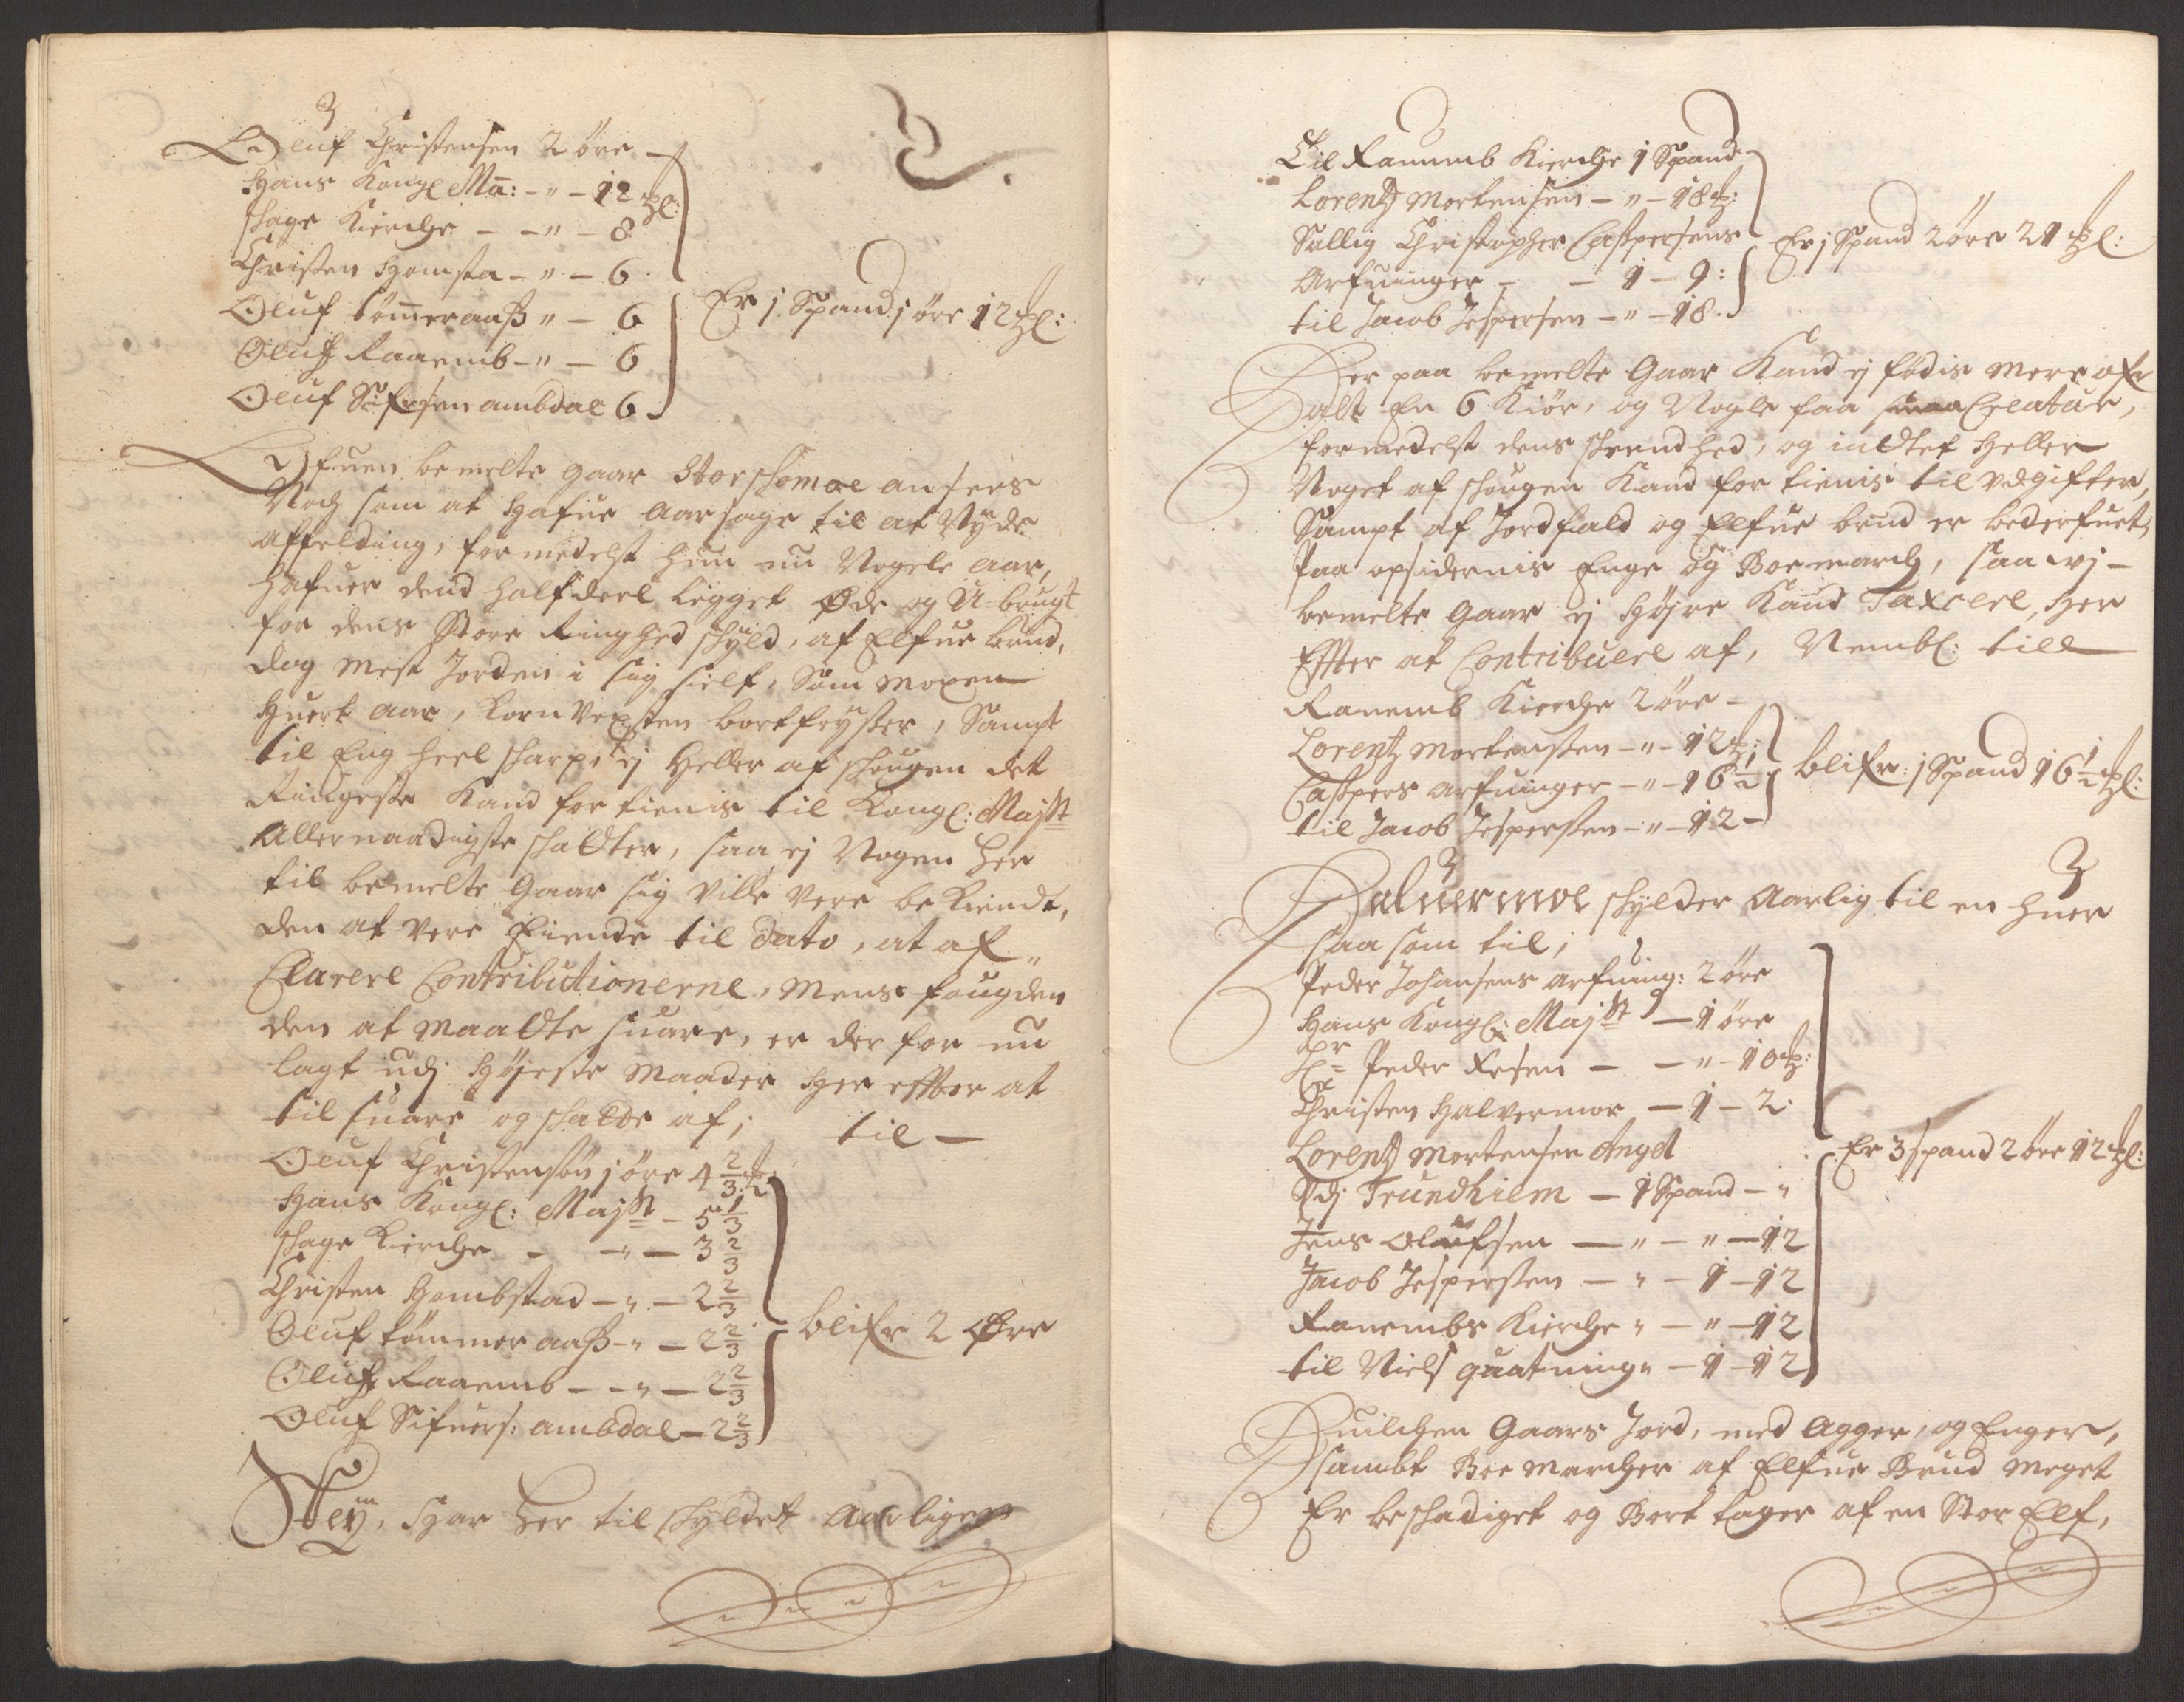 Oluf Christensen 2 öre
Hans Kongl Ma: - " - 12 ₰l:
Schage Kierche - - " - 8
Christen Homsta - " - 6
Oluf tömeraaß " - 6
Oluf Raanemb - " - 6
Oluf Sifuersen ambdal 6
Er j Spand j öre 12 ₰l:
Ofuen bemelte gaar Storschomoe ansees
Noch som at Hafue Aarsage til at Nÿde
Affelding, formedelst hun nu Nogele aar,
hafuer dend halfdeel ligget Øde og U-brugt
for dens Store Ringhed schÿld, af Elfue brud,
dog mest Jorden i sig sielf, Som moxen
Huert aar, Kornvexsten bortfrÿsser, Sampt
til Eng heel scharp, ej heller af schougen det
Ringeste Kand fortienis til Kongl: Majst
Allernaadigste schatter, saa ej Nogen her
til bemelte Gaar sig ville vere bekiendt,
den at vere Eiende til dato, at af
Clarere Contributionerne, mens fougden
den at maatte suare, er der for nu
lagt udj Höjeste maader her effter at
til suare og schatte af; til -
Oluf Christensön j öre 4 2/3 ₰
Hans Kongl: Majst - 5 1/3
Schage Kierche - - " - 3 2/3
Christen Hombstad - " - 2 2/3
Oluf tömmeraaß - " - 2 2/3
Oluf Raanemb - - " - 2 2/3
Oluf Sifuers: ambdal - 2 2/3
blifr 2 Øre
Meÿ, Har her til schÿldet Aarligen
Til Ranemb Kierche 1 Spand
Lorentz Mortensen - " - 18 ₰:
Sallig Christopher Caspersens
Arfuinger - - 1 - 9:
til Jacob Jespersen - " - 18.
Er j Spand 2 öre 21 ₰l:
Her paa bemelte Gaar Kand ej födis mere ofr
alt En 6 Kiör, og Nogle faa smaa Creatur,
formedelst dens scheendhed, og indtet heller
Noget af schougen Kand fortienis til udgifter,
Sampt af Jordfald og Elfue brud er bederfuet,
paa opsidernis Enge og Boemarch, saa vj -
bemelte Gaar ej Höjre Kand Taxere, her
Effter at Contribuere af, Nembl: till
Ranemb Kierche 2 öre -
Lorentz Mortensen - " - 12 ₰:
Caspers arfuinger - " - 16 1/2
til Jacob Jespersen - " - 12 -
blifr: j Spand 16 1/2 ₰l:
Haluermoe schÿlder Aarlig til en huer
saa som til;
Peder Johansens arfuing: 2 öre
Hans Kongl: Majst - 1 öre
Hr Peder Resen - - " - 10 ₰:
Christen Halvermoe - 1 - 2.
Lorentz Mortensen Angel
Udj Trundhiem - 1 Spand - "
Jens Olufsen - " - " - 12
Jacob Jespersen - " - 1 - 12
Ranembs Kierche " - " - 12
til Niels quatning " - 1 - 12
Er 3 spand 2 öre 12 ₰l:
Huilchen Gaars Jord, med Agger, og Enger,
sambt Boemarcher af Elfue Brud meget
Er beschadiget og Bort tager af en Stor Elf,